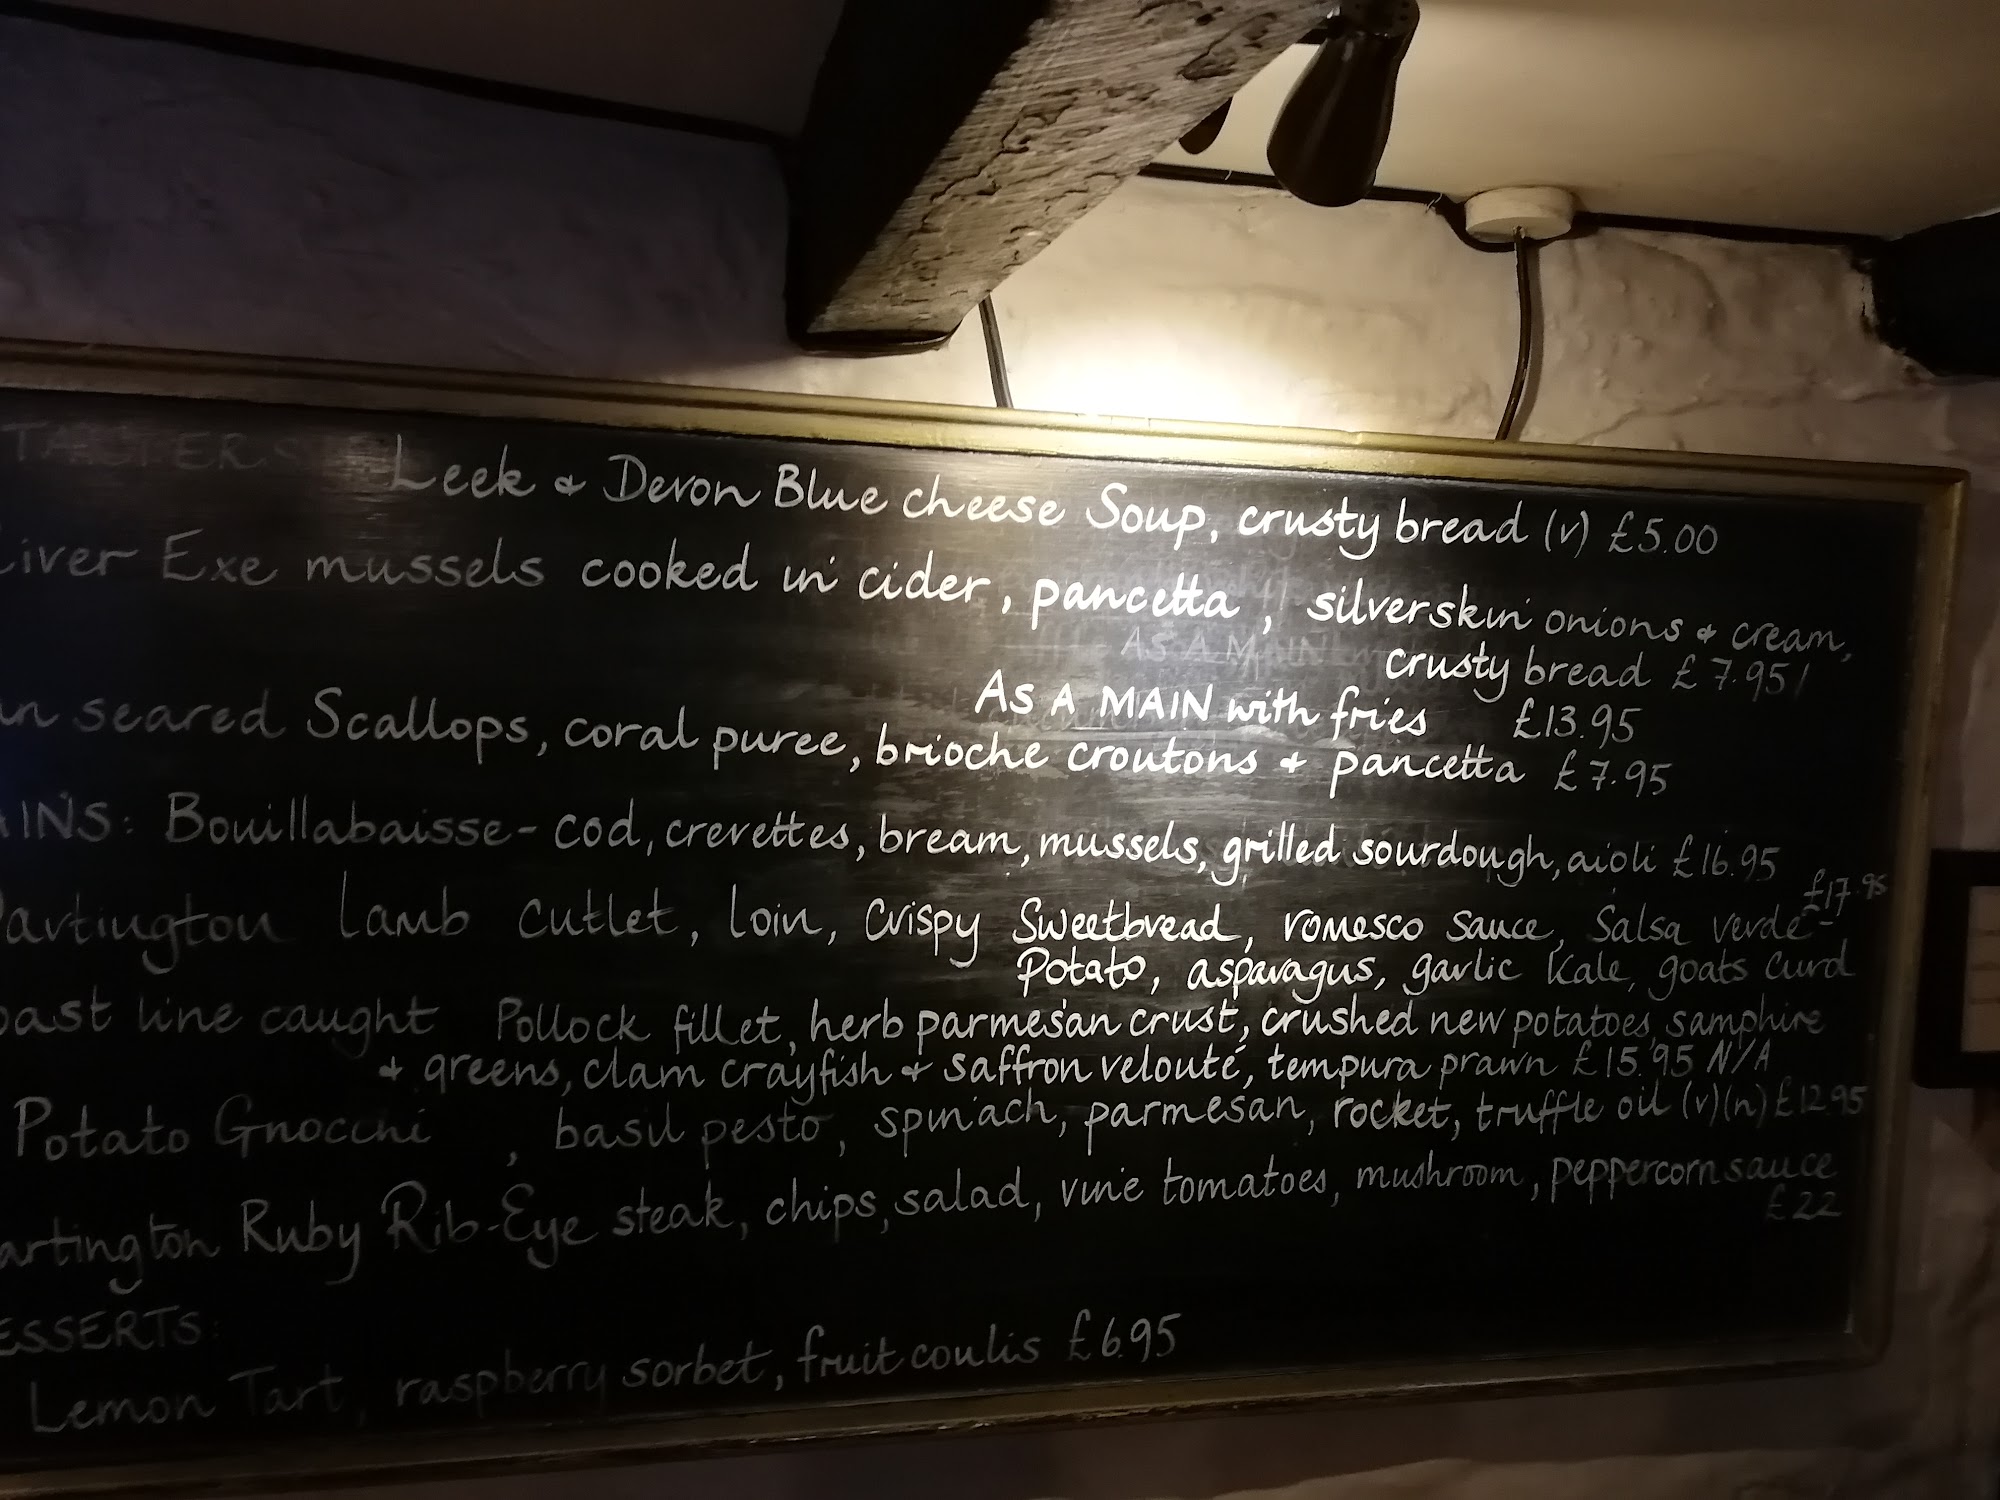 Leek & Devon Blue cheese Soup, crusty bread (v) £5.00
Exe mussels cooked in cider, pancetta, silverskin onions & cream,
crusty bread £7.95/
AS A MAIN with fries £13.95
seared Scallops, coral puree, brioche croutons & pancetta £7.95
AINS: Bouillabaisse - cod, crevettes, bream, mussels, grilled sourdough, aioli £16.95
artington lamb cutlet, loin, crispy Sweetbread, romesco sauce, Salsa verde - £17.95
Potato, asparagus, garlic kale, goats curd
oast line caught Pollock fillet, herb parmesan crust, crushed new potatoes, samphire
& greens, clam crayfish & saffron velouté, tempura prawn £15.95 N/A
Potato Gnocchi, basil pesto, spinach, parmesan, rocket, truffle oil (v)(n) £12.95
artington Ruby Rib-Eye steak, chips, salad, vine tomatoes, mushroom, peppercorn sauce
£22
ESSERTS:
Lemon Tart, raspberry sorbet, fruit coulis £6.95